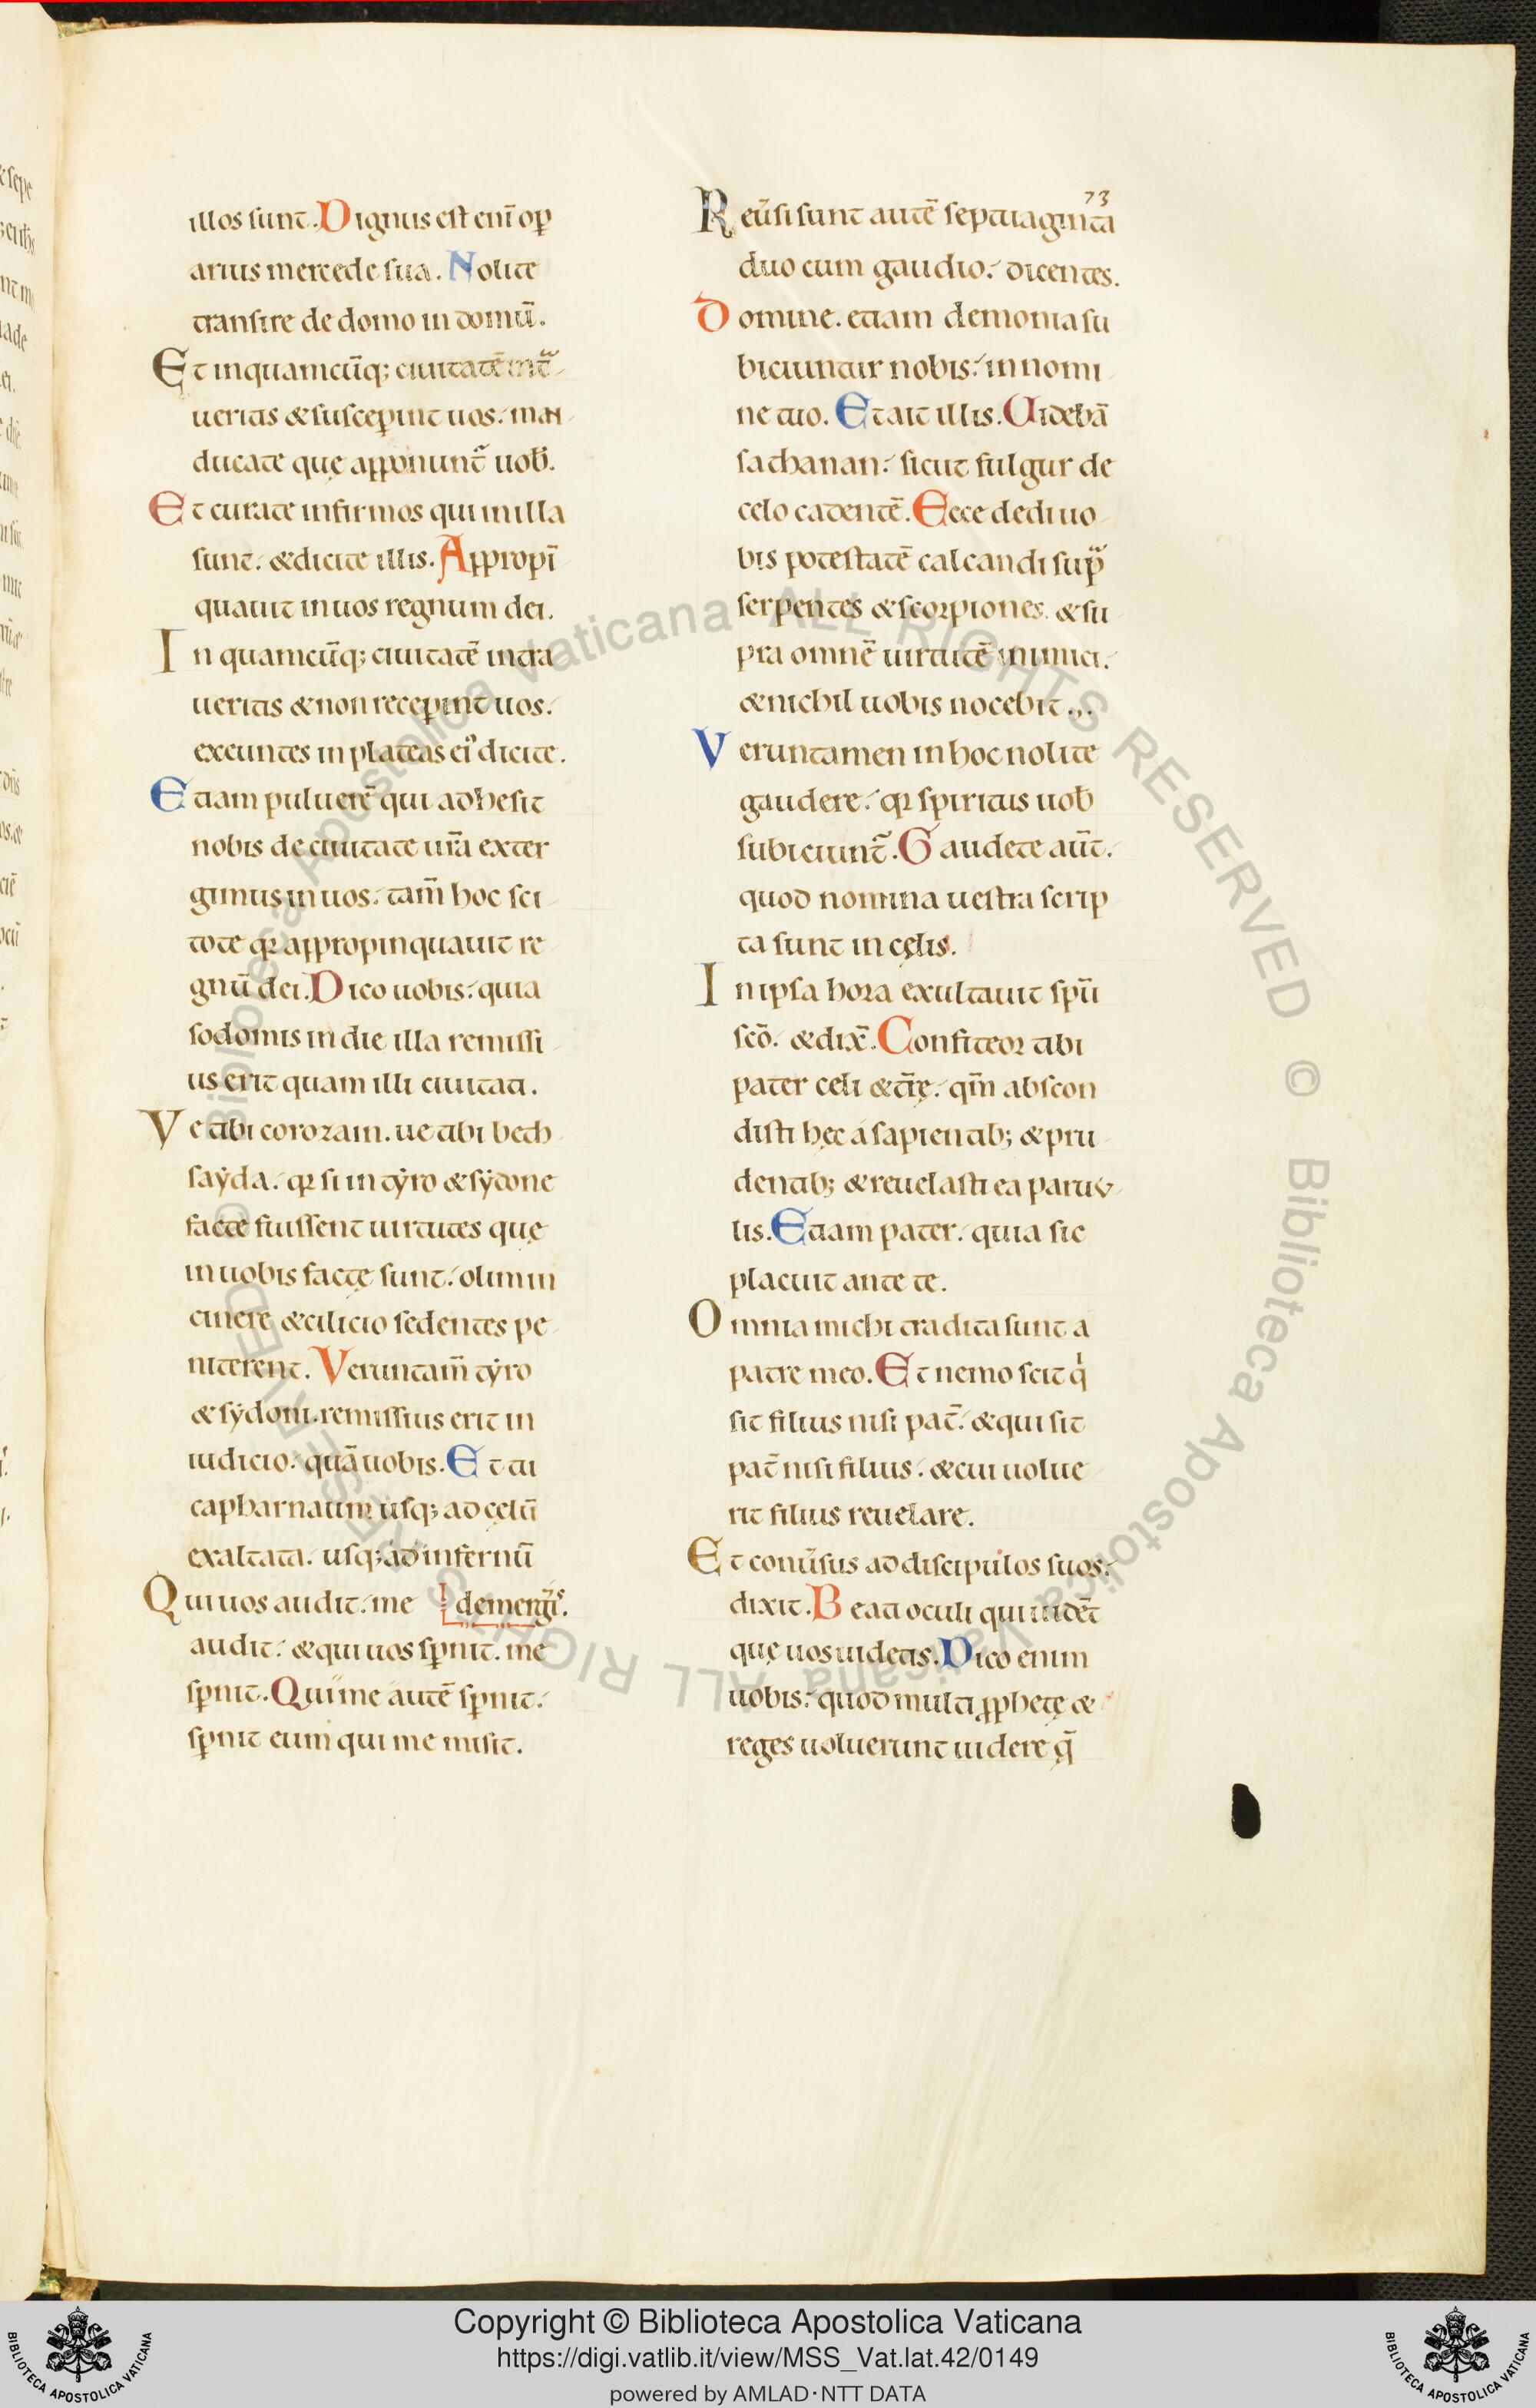 illos sunt. Dignus est enī oꝑ
arius mercede sua. Nolite
transire de domo in domū.
Et inquamcūq; ciuitatē int̄ͣ
ueritis & susceꝑint uos. man
ducate quę apponunt᷑ uob̄.
Et curate infirmos qui in illa
sunt. & dicite illis. Appropī
quauit in uos regnum dei.
In quamcūq; ciuitatē intra
ueritis & non receꝑint uos.
exeuntes in plateas ei᷒ dicite.
Etiam puluerē qui adhesit
nobis de ciuitate ur̄a exter
gimus in uos. tam̄ hoc sci
tote qꝛ appropinquauit re
gnū dei. Dico uobis. quia
sodomis in die illa remissi
us erit quam illi ciuitati.
Ve tibi corozam. ue tibi beth
saẏda. qꝛ si in tẏro & sẏdone
facte fuissent uirtutes quę
in uobis factę sunt. olim in
cinere & cilicio sedentes pe
niterent. Veruntam̄ tẏro
& sẏdoni. remissius erit in
iudicio. quā uobis. Et tu
capharnaum usq; ad cęlū
exaltata. usq; ad infernū
Qui uos audit. me demerḡis.
audit. & qui uos sꝑnit. me
sꝑnit. Qui me autē sꝑnit.
sꝑnit eum qui me misit.
73
Reūsi sunt autē septuaginta
duo cum gaudio. dicentes.
Domine. etiam demonia su
biciuntur nobis. in nomi
ne tuo. Et ait illis. Uidebā
sathanan. sicut fulgur de
celo cadentē. Ecce dedi uo
bis potestatē calcandi supͣ
serpentes & scorpiones. & su
pra omnē uirtutē inimici.
& nichil uobis nocebit.,.
Veruntamen in hoc nolite
gaudere. qꝛ spiritus uob̄
subiciunt᷑. Gaudete aūt.
quod nomina uestra scrip
ta sunt in cęlis.
In ipsa hora exultauit spū
scō. & dix̄. Confiteor tibi
pater celi & tr̄ę. qm̄ abscon
disti hęc a sapientib; & pru
dentib; & reuelasti ea paruu
lis. Etiam pater. quia sic
placuit ante te.
Omnia michi tradita sunt a
patre meo. Et nemo scit qⁱ
sit filius nisi pat̄. & qui sit
pat̄ nisi filius. & cui uolue
rit filius reuelare.
Et conūsus ad discipulos suos.
dixit. Beati oculi qui uidēt
quę uos uidetis. Dico enim
uobis. quod multi ꝓphetę &
reges uoluerunt uidere q̄
Copyright © Biblioteca Apostolica Vaticana
https://digi.vatlib.it/view/MSS_Vat.lat.42/0149
powered by AMLAD·NTT DATA